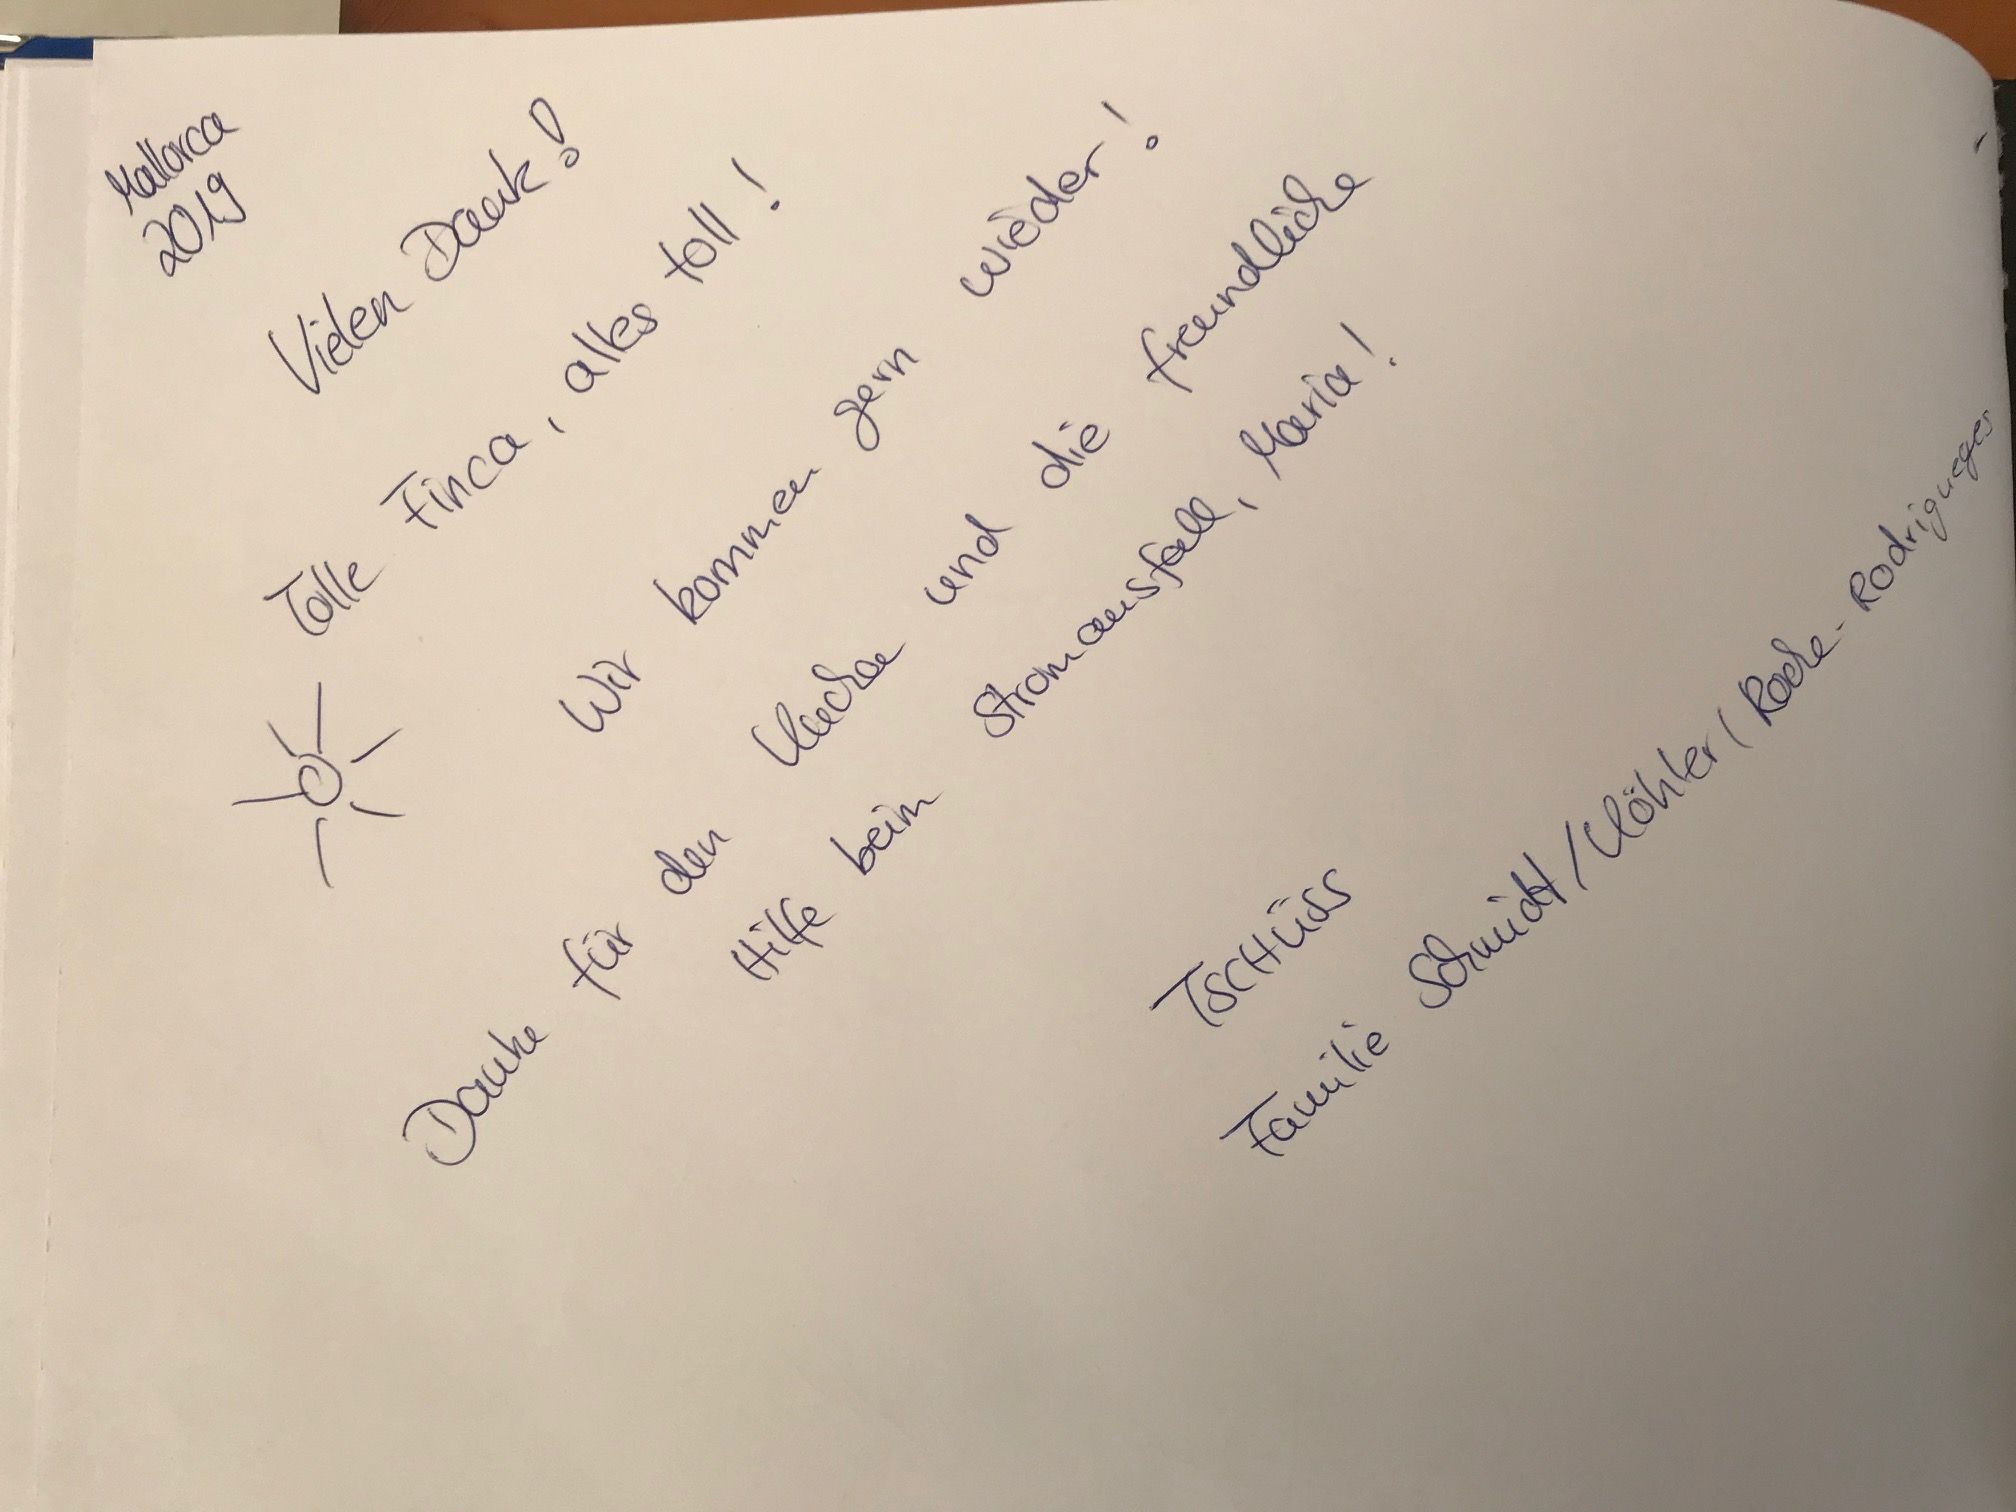 Mallorca
2019
Vielen Dank!
Tolle Finca, alles toll!
Wir kommen gern wieder!
Danke für den Kuchen und die freundliche
Hilfe beim Stromausfall, Maria!
TSCHÜSS
Familie Schmidt / Köhler / Roche-Rodrigueges